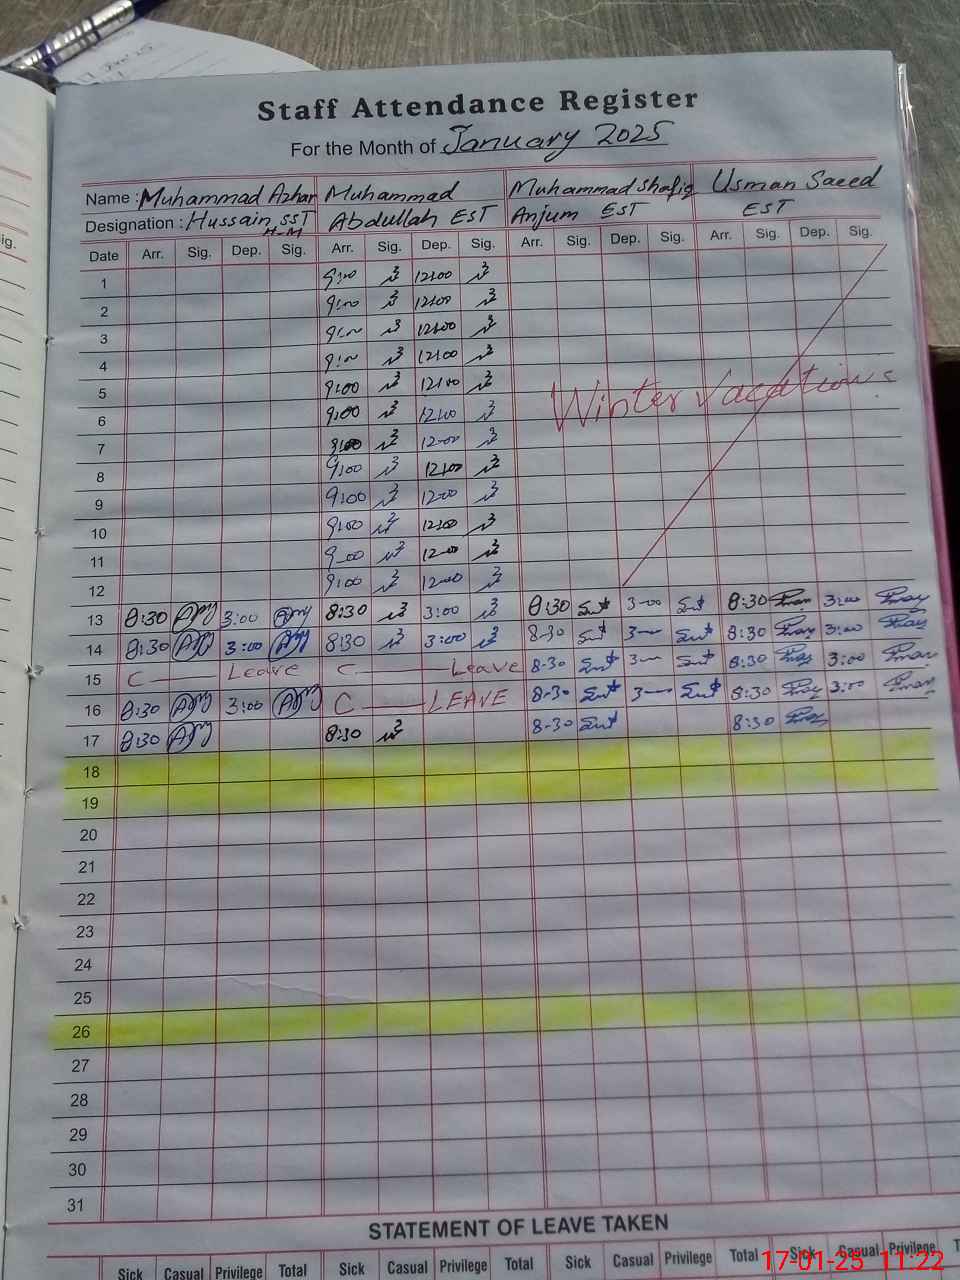 Staff Attendance Register
For the Month of January 2025
Name : Muhammad Azhar Muhammad Muhammad Shafiq Usman Saeed
Designation : Hussain SST Abdullah EST Anjum EST EST
H-M
Date Arr. Sig. Dep. Sig. Arr. Sig. Dep. Sig. Arr. Sig. Dep. Sig. Arr. Sig. Dep. Sig.
ig.
1 9:00 12:00
2 9:00 12:00
3 9:00 12:00
4 9:00 12:00
5 9:00 12:00
Winter Vacations
6 9:00 12:00
7 9:00 12-00
8 9:00 12:00
9 9:00 12-00
10 9:00 12:00
11 9-00 12-00
12 9:00 12-00
13 8:30 3:00 8:30 3:00 8:30 3-00 8:30 3:00
14 8:30 3:00 8:30 3:00 8-30 3- 8:30 3:00
15 C — Leave C — Leave 8-30 3- 8:30 3:00
16 8:30 3:00 C — LEAVE 8-30 3- 8:30 3:00
17 8:30 8:30 8-30 8:30
18
19
20
21
22
23
24
25
26
27
28
29
30
31
STATEMENT OF LEAVE TAKEN
Sick Casual Privilege Total Sick Casual Privilege Total Sick Casual Privilege Total Sick Casual Privilege
17-01-25 11:22